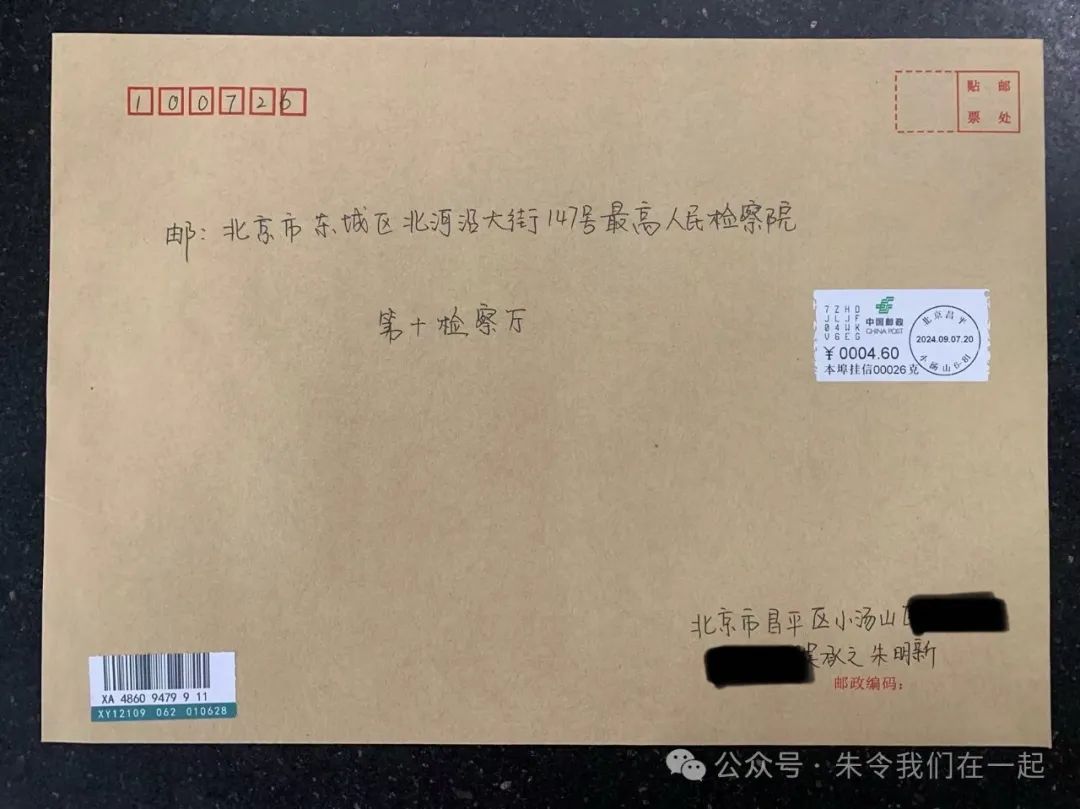 100726
贴 邮
票 处
邮：北京市东城区北河沿大街147号最高人民检察院
第十检察厅
7ZHD
JLJF
04WK
V6EG
中国邮政
CHINA POST
北京昌平
2024.09.07.20
小汤山
¥0004.60
本埠挂信00026克
北京市昌平区小汤山
吴承之 朱明新
邮政编码：
XA 4860 9479 9 11
XY12109 062 010628
公众号·朱令我们在一起